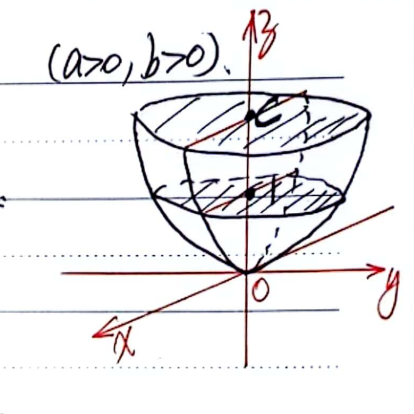 (a>0, b>0).
z
c
O
y
x